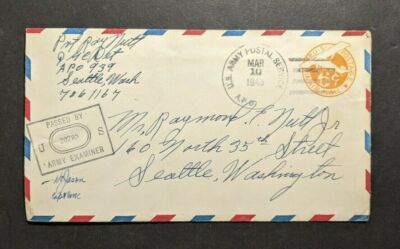 Pvt Ray Nutt
APO 939
Seattle, Wash
7061167
U.S. ARMY POSTAL SERVICE
MAR
10
1943
A.P.O.
6¢
PASSED BY
U S
ARMY EXAMINER
Mr. Raymond F. Nutt, Jr.
160 North 35th Street
Seattle, Washington